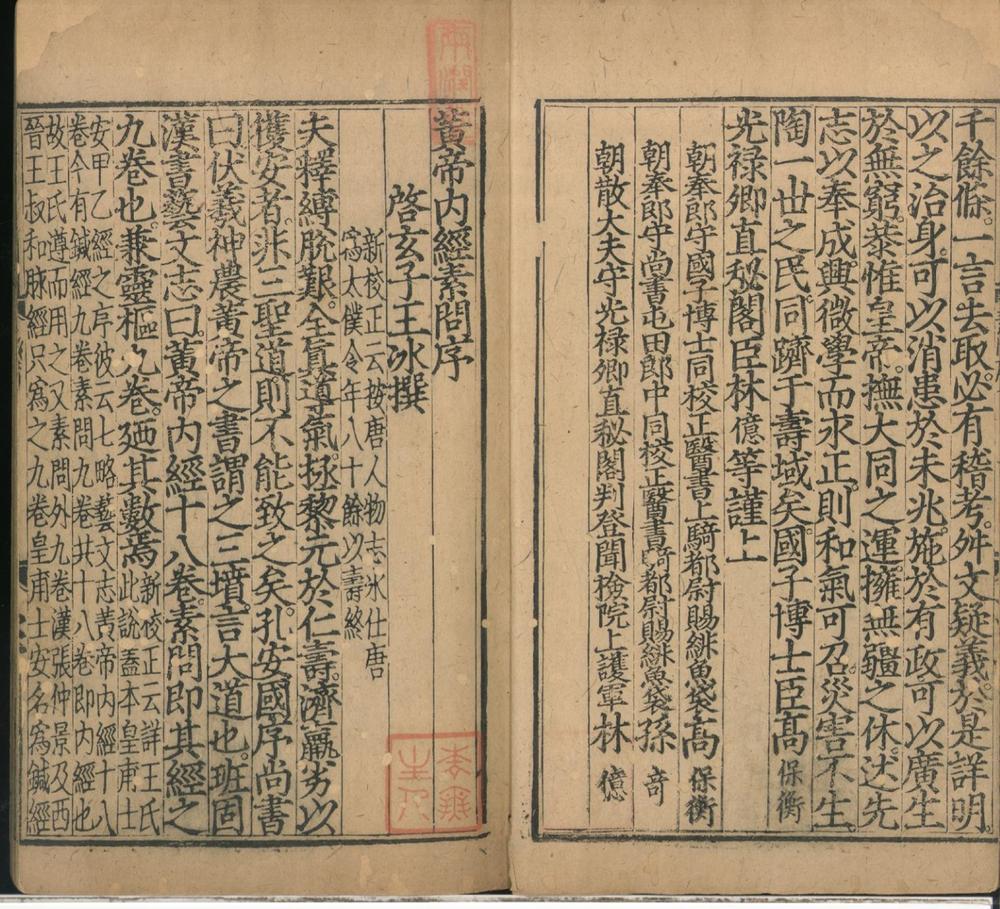 千餘條一言去取必有稽考舛文疑義於是詳明
以之治身可以消患於未兆施於有政可以廣生
於無窮恭惟皇帝撫大同之運擁無疆之休述先
志以奉成興微學而永正則和氣可召災害不生
陶一世之民同躋于壽域矣國子博士臣高保衡
光祿卿直秘閣臣林億等謹上
朝奉郎守國子博士同校正醫書上騎都尉賜緋魚袋高保衡
朝奉郎守尚書屯田郎中同校正醫書騎都尉賜緋魚袋孫奇
朝散大夫守光祿卿直秘閣判登聞檢院上護軍林億
黃帝內經素問序
啓玄子王冰撰
新校正云按唐人物志冰仕唐
為太僕令年八十餘以壽終
夫釋縛脫艱全眞導氣拯黎元於仁壽濟羸劣以
獲安者非三聖道則不能致之矣孔安國序尚書
曰伏羲神農黃帝之書謂之三墳言大道也班固
漢書藝文志曰黃帝內經十八卷素問即其經之
九卷也兼靈樞九卷廼其數焉
新校正云詳王氏
此說蓋本皇甫士
安甲乙經之序彼云七略藝文志黃帝內經十八
卷今有鍼經九卷素問九卷共十八卷即內經也
故王氏遵而用之又素問外九卷漢張仲景及西
晉王叔和脉經只為之九卷皇甫士安名為鍼經